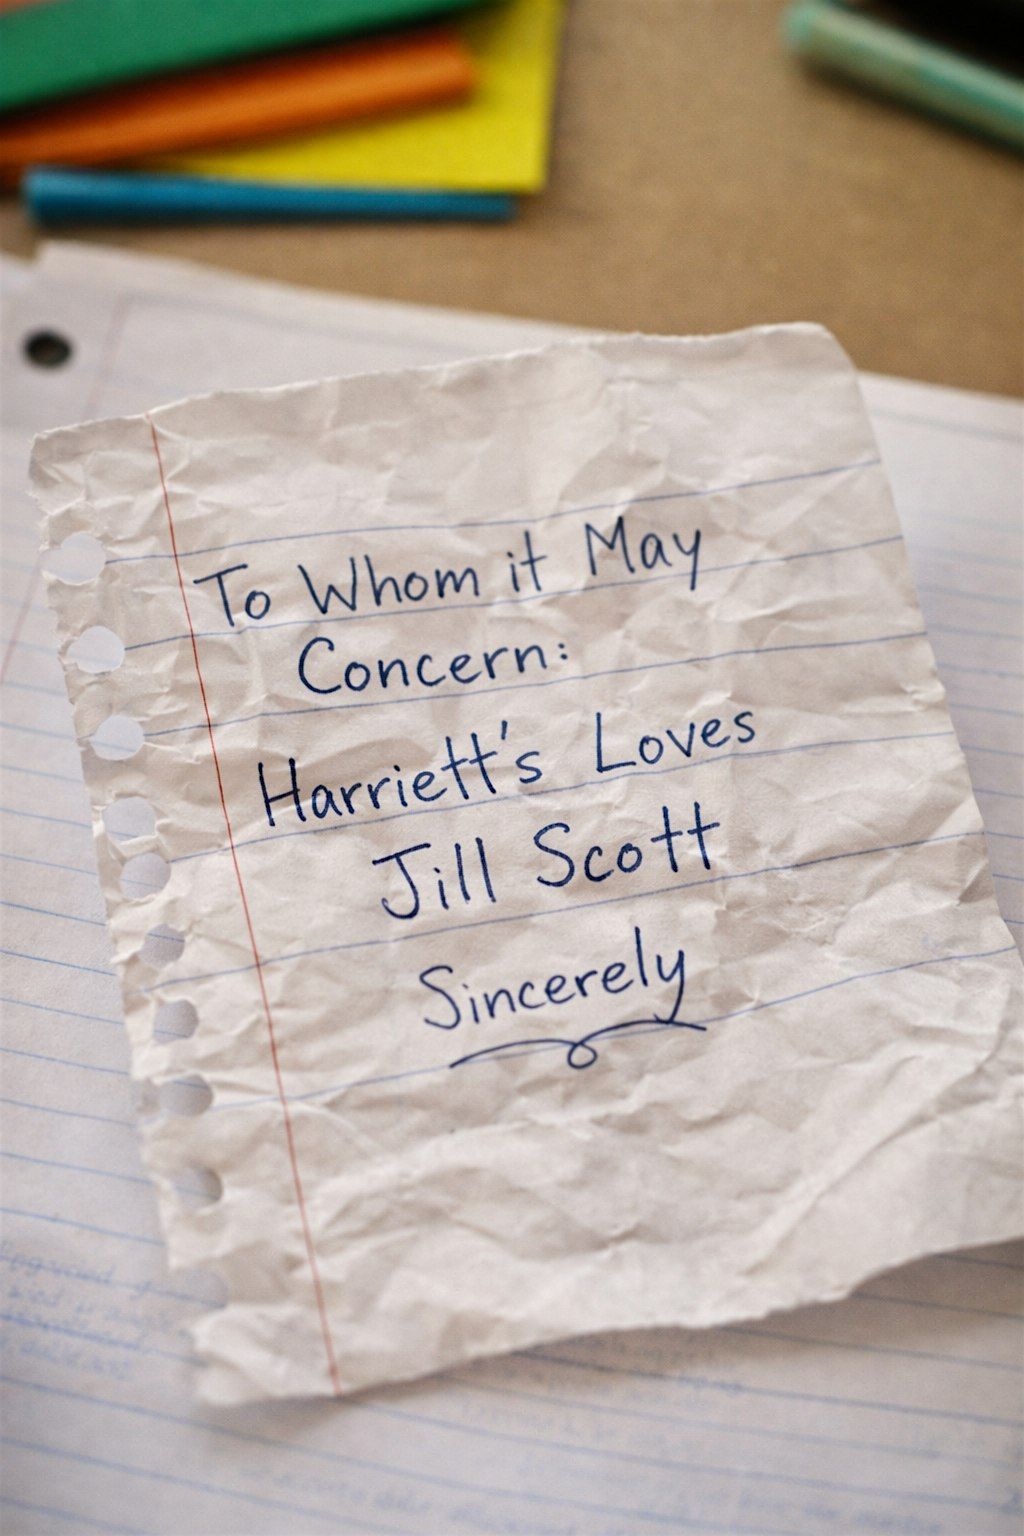 To Whom it May
Concern:
Harriett's Loves
Jill Scott
Sincerely